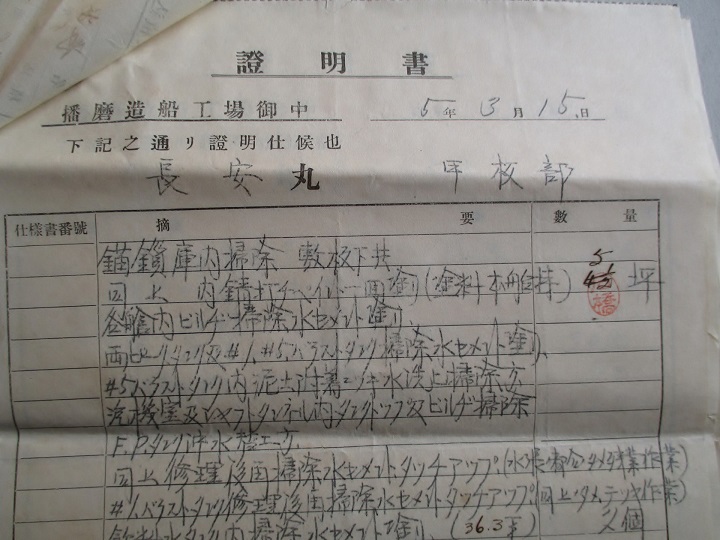 證明書
播磨造船工場御中 5年3月15日
下記之通リ證明仕候也
長安丸 甲板部
仕樣書番號 摘要 數量
錨鎖庫内掃除 敷板下共
同上内錆打チペイント一回塗リ(塗料本船持) 5 坪
各艙内ビルヂ掃除水セメント塗リ
両ピークタンク及#1,#5バラストタンク掃除水セメント塗リ
#5バラストタンク内泥土附着ニツキ水洗上掃除
汽機室及シャフトタンネル内タンクトップ及ビルヂ掃除
F.P.タンク
同上修理後再掃除水セメントタッチアップ
#1バラストタンク修理後再掃除水セメントタッチアップ
飲料水タンク内掃除水セメント塗リ (36.3 2個